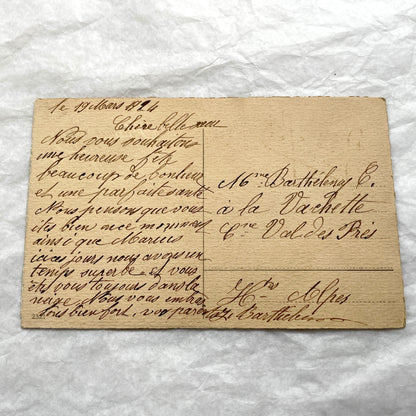 le 19 Mars 1924
Chère belle sœur
Nous vous souhaitons
une heureuse fête
beaucoup de bonheur
et une parfaite santé
Nous pensons que vous
êtes bien en ce moment
ainsi que Marius
ici ces jours nous avons un
temps superbe et vous
êtes vous toujours dans la
neige. Nous vous embras
tous bien fort, vos parents
Barthélemy
Mme Barthélemy C.
à la Vachette
Cne Val des Prés
Htes Alpes